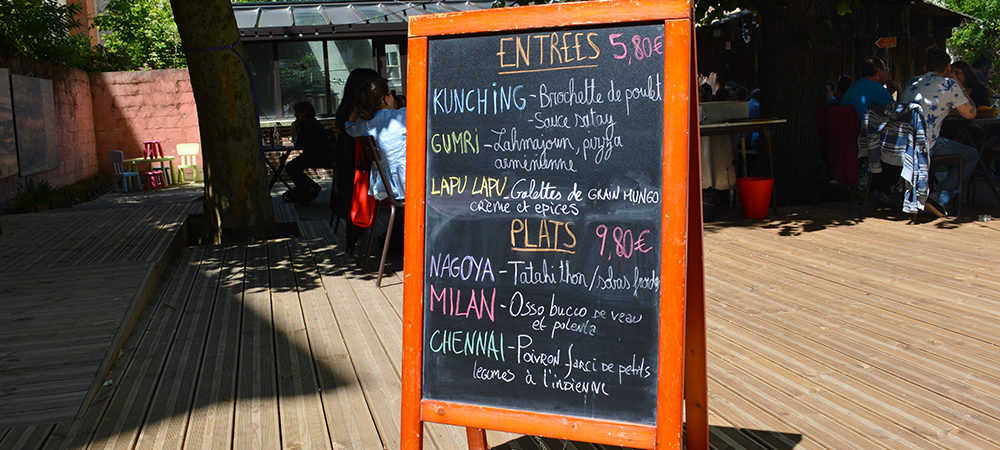 ENTREES 5,80€
KUNCHING - Brochette de poulet
- Sauce satay
GUMRI - Lahmajoun, pizza
arménienne
LAPU LAPU - Galettes de GRAIN MUNGO
CRÈME et EPICES
PLATS 9,80€
NAGOYA - Tataki thon/sobas froides
MILAN - Osso bucco de veau
et polenta
CHENNAI - Poivron farci de petits
légumes à l'indienne